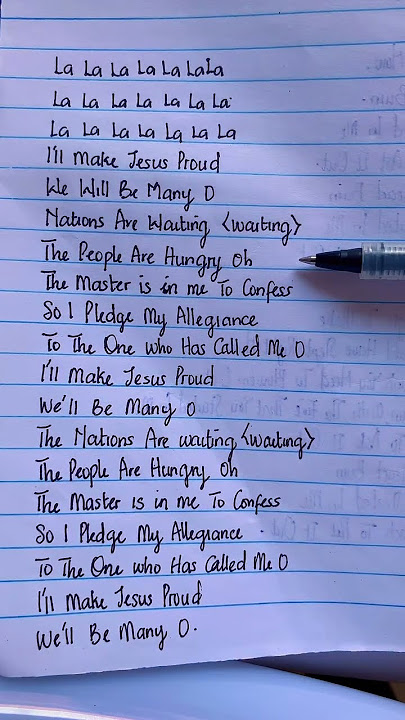 La La La La La La La
La La La La La La La.
La La La La La La La
I'll Make Jesus Proud
We Will Be Many O
Nations Are Waiting <waiting>
The People Are Hungry Oh
The Master is in me To Confess
So I Pledge My Allegiance
To The One who Has Called Me O
I'll Make Jesus Proud
We'll Be Many O
The Nations Are waiting <waiting>
The People Are Hungry Oh
The Master is in me To Confess
So I Pledge My Allegiance
To The One who Has Called Me O
I'll Make Jesus Proud
We'll Be Many O.